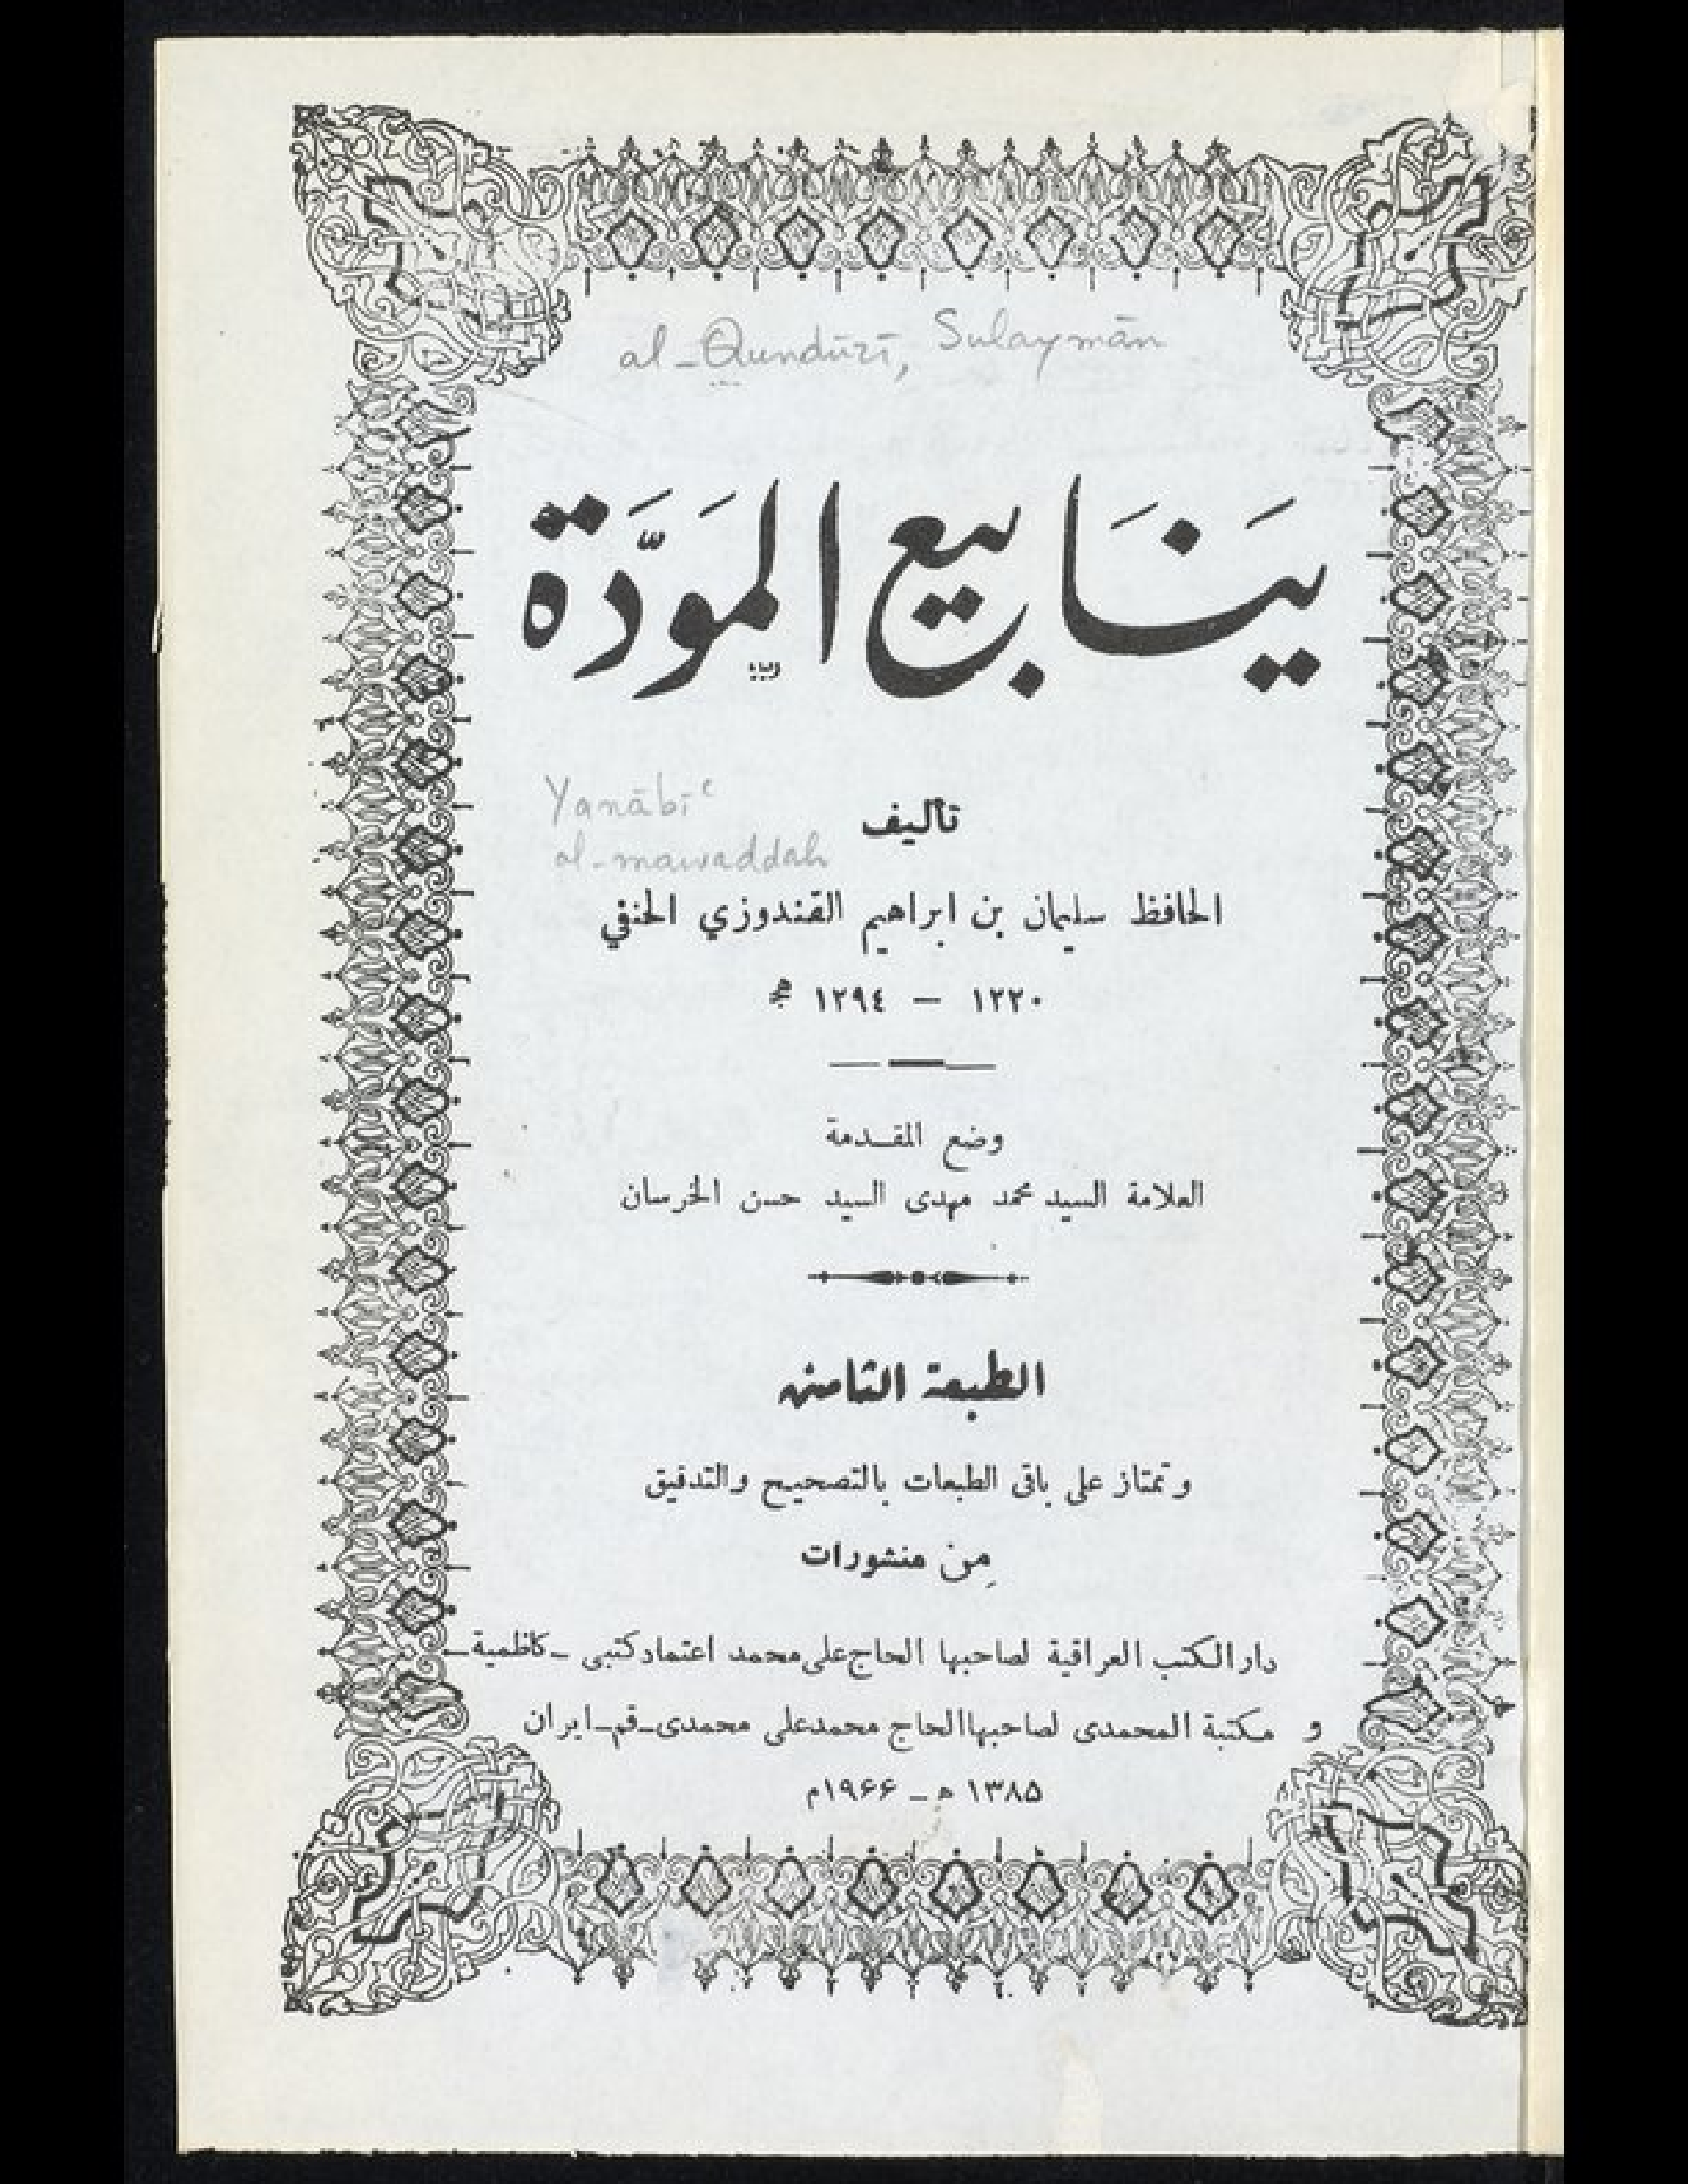 al-Qundūzī, Sulaymān
يَنَابيع المَودَّة
Yanābīʿ
al-mawaddah
تأليف
الحافظ سليمان بن ابراهيم القندوزي الحنفي
١٢٢٠ — ١٢٩٤ هـ
وضع المقدمة
العلامة السيد محمد مهدى السيد حسن الخرسان
الطبعة الثامنة
وتمتاز على باقى الطبعات بالتصحيح والتدقيق
مِن منشورات
دار الكتب العراقية لصاحبها الحاج على محمد اعتماد كتبى ــ كاظمية ــ
و مكتبة المحمدى لصاحبها الحاج محمد على محمدى ــ قم ــ ايران
۱۳۸۵ ه ــ ۱۹۶۶م